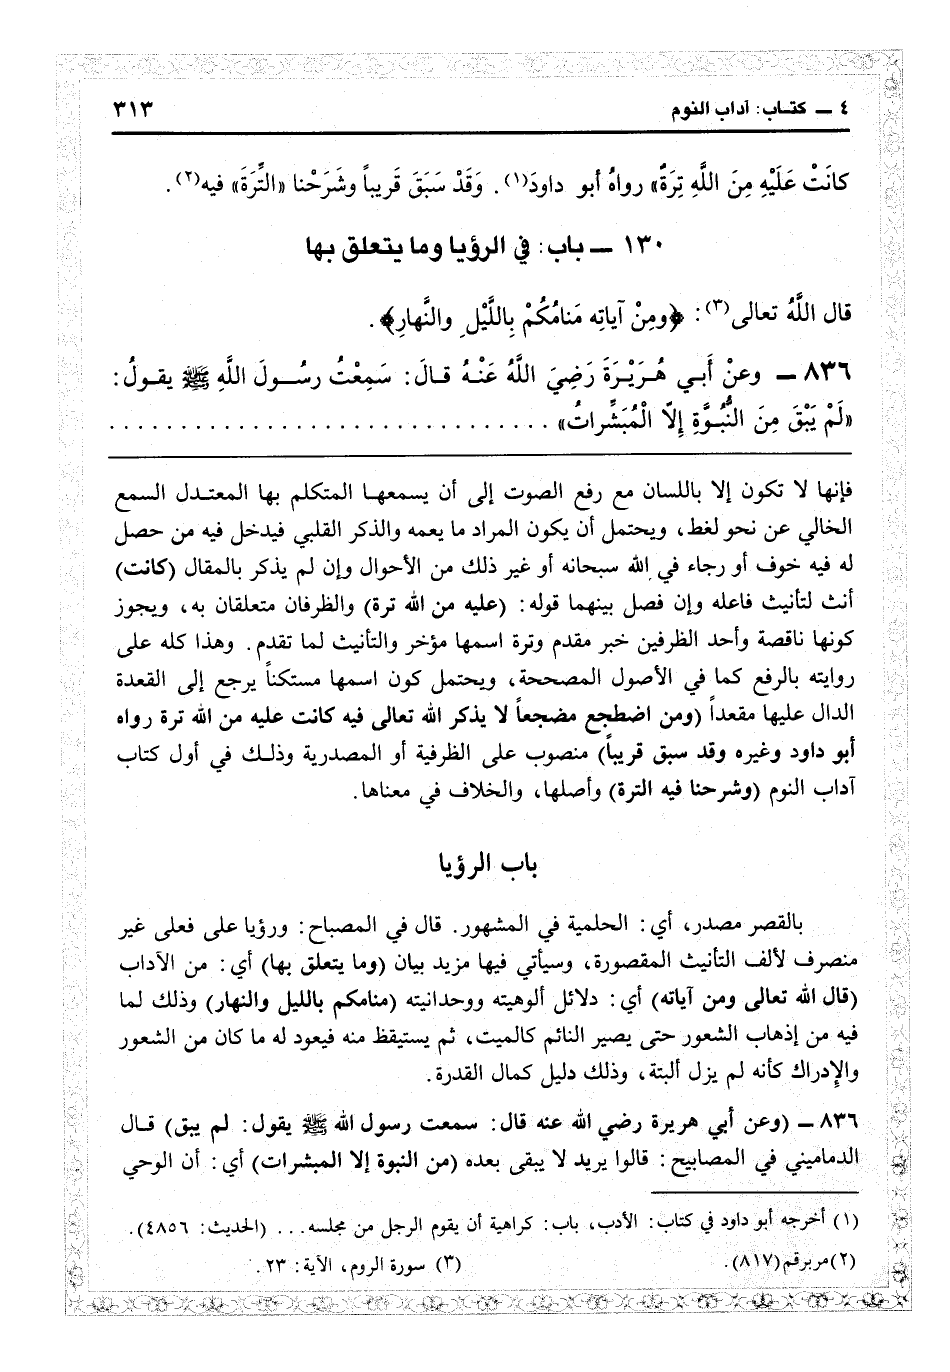 ٤ ــ كتـاب: آداب النوم ٣١٣
كانَتْ عَلَيْهِ مِنَ اللَّهِ تِرَةٌ» رواهُ أبو داودَ(١). وَقَدْ سَبَقَ قَريباً وشَرَحْنا «التِّرَةَ» فيه(٢).
١٣٠ ــ باب: في الرؤيا وما يتعلق بها
قال اللَّهُ تعالى(٣): ﴿ومِنْ آياتِه مَنامُكُمْ بِاللَّيْلِ والنَّهارِ﴾.
٨٣٦ ــ وعنْ أَبـي هُـرَيْـرَةَ رَضِيَ اللَّهُ عَنْـهُ قـالَ: سَمِعْتُ رسُــولَ اللَّهِ ﷺ يقـولُ:
«لَمْ يَبْقَ مِنَ النُّبُـوَّةِ إِلاَّ الْمُبَشِّراتُ» . . . . . . . . . . . . . . . . . . . . . . . . . . . . . . .
فإنها لا تكون إلا باللسان مع رفع الصوت إلى أن يسمعهـا المتكلم بها المعتـدل السمع
الخالي عن نحو لغط، ويحتمل أن يكون المراد ما يعمه والذكر القلبي فيدخل فيه من حصل
له فيه خوف أو رجاء في الله سبحانه أو غير ذلك من الأحوال وإن لم يذكر بالمقال (كانت)
أنث لتأنيث فاعله وإن فصل بينهما قوله: (عليه من الله ترة) والظرفان متعلقان به، ويجوز
كونها ناقصة وأحد الظرفين خبر مقدم وترة اسمها مؤخر والتأنيث لما تقدم. وهذا كله على
روايته بالرفع كما في الأصول المصححة، ويحتمل كون اسمها مستكناً يرجع إلى القعدة
الدال عليها مقعداً (ومن اضطجع مضجعاً لا يذكر الله تعالى فيه كانت عليه من الله ترة رواه
أبو داود وغيره وقد سبق قريباً) منصوب على الظرفية أو المصدرية وذلـك في أول كتاب
آداب النوم (وشرحنا فيه الترة) وأصلها، والخلاف في معناها.
باب الرؤيا
بالقصر مصدر، أي: الحلمية في المشهور. قال في المصباح: ورؤيا على فعلى غير
منصرف لألف التأنيث المقصورة، وسيأتي فيها مزيد بيان (وما يتعلق بها) أي: من الآداب
(قال الله تعالى ومن آياته) أي: دلائل ألوهيته ووحدانيته (منامكم بالليل والنهار) وذلك لما
فيه من إذهاب الشعور حتى يصير النائم كالميت، ثم يستيقظ منه فيعود له ما كان من الشعور
والإدراك كأنه لم يزل ألبتة، وذلك دليل كمال القدرة.
٨٣٦ ــ (وعن أبي هريرة رضي الله عنه قال: سمعت رسول الله ﷺ يقول: لم يبق) قـال
الدماميني في المصابيح: قالوا يريد لا يبقى بعده (من النبوة إلا المبشرات) أي: أن الوحي
(١) أخرجه أبو داود في كتاب: الأدب، باب: كراهية أن يقوم الرجل من مجلسه... (الحديث: ٤٨٥٦).
(٢)مر برقم(٨١٧). (٣) سورة الروم، الآية: ٢٣.